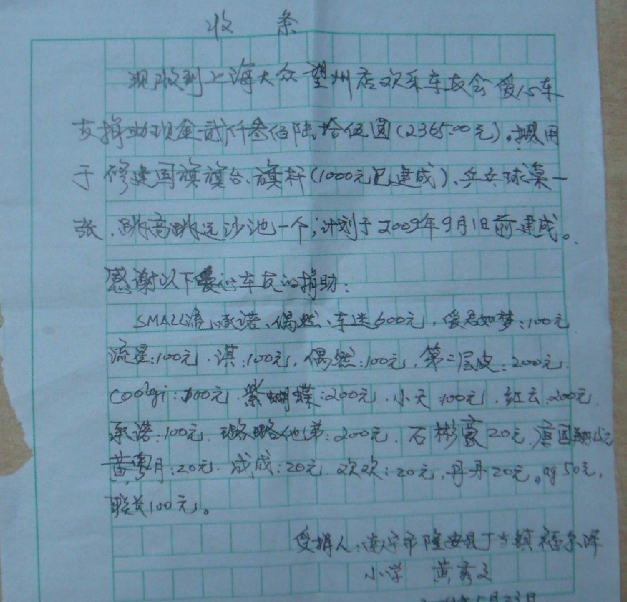 收条
现收到上海大众望州店欢乐车友会爱心车
友捐助现金贰仟叁佰陆拾伍圆(2365.00元),拟用
于修建国旗旗台、旗杆(1000元已建成)、乒乓球桌一
张、跳高跳远沙池一个;计划于2009年9月1日前建成。
感谢以下爱心车友的捐助:
SMALL 承诺、偶然、车迷600元,爱君如梦:100元
流星:100元、淇:100元,偶然:100元,第二层皮:200元
coolgi:100元 紫蝴蝶:200元、小天:100元、红云:200元
承诺:100元、 200元、石彬 20元,
黄 月:20元、成成:20元、欢欢:20元,丹丹20元。 50元,
100元。
受捐人:南宁市隆安县丁当镇
小学 黄
5月23日